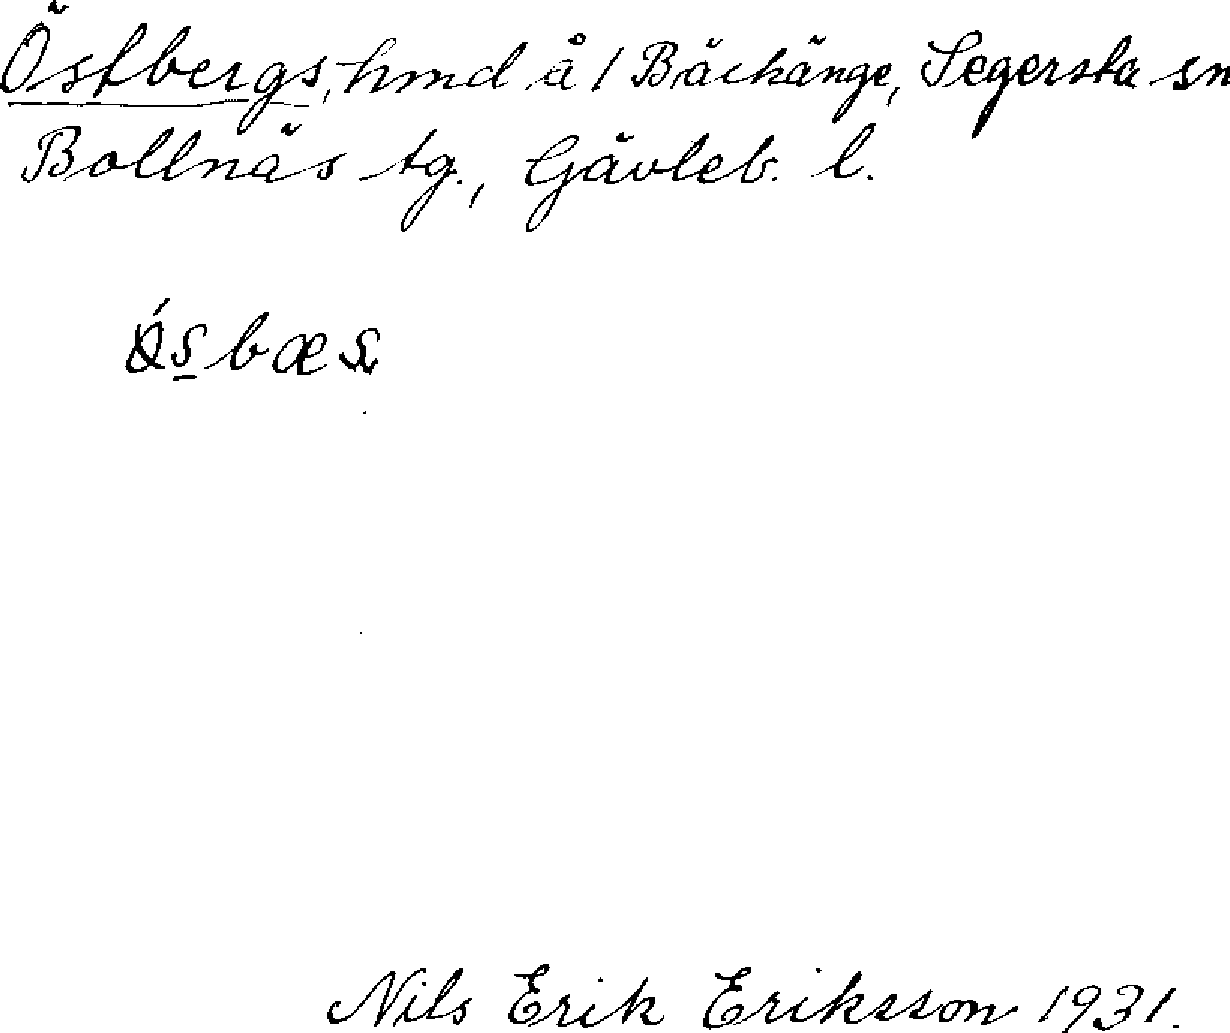 Östbergs, hmd å 1 Bäckänge, Segersta sn
Bollnäs tg., Gävleb. l.
Nils Erik Eriksson 1931.